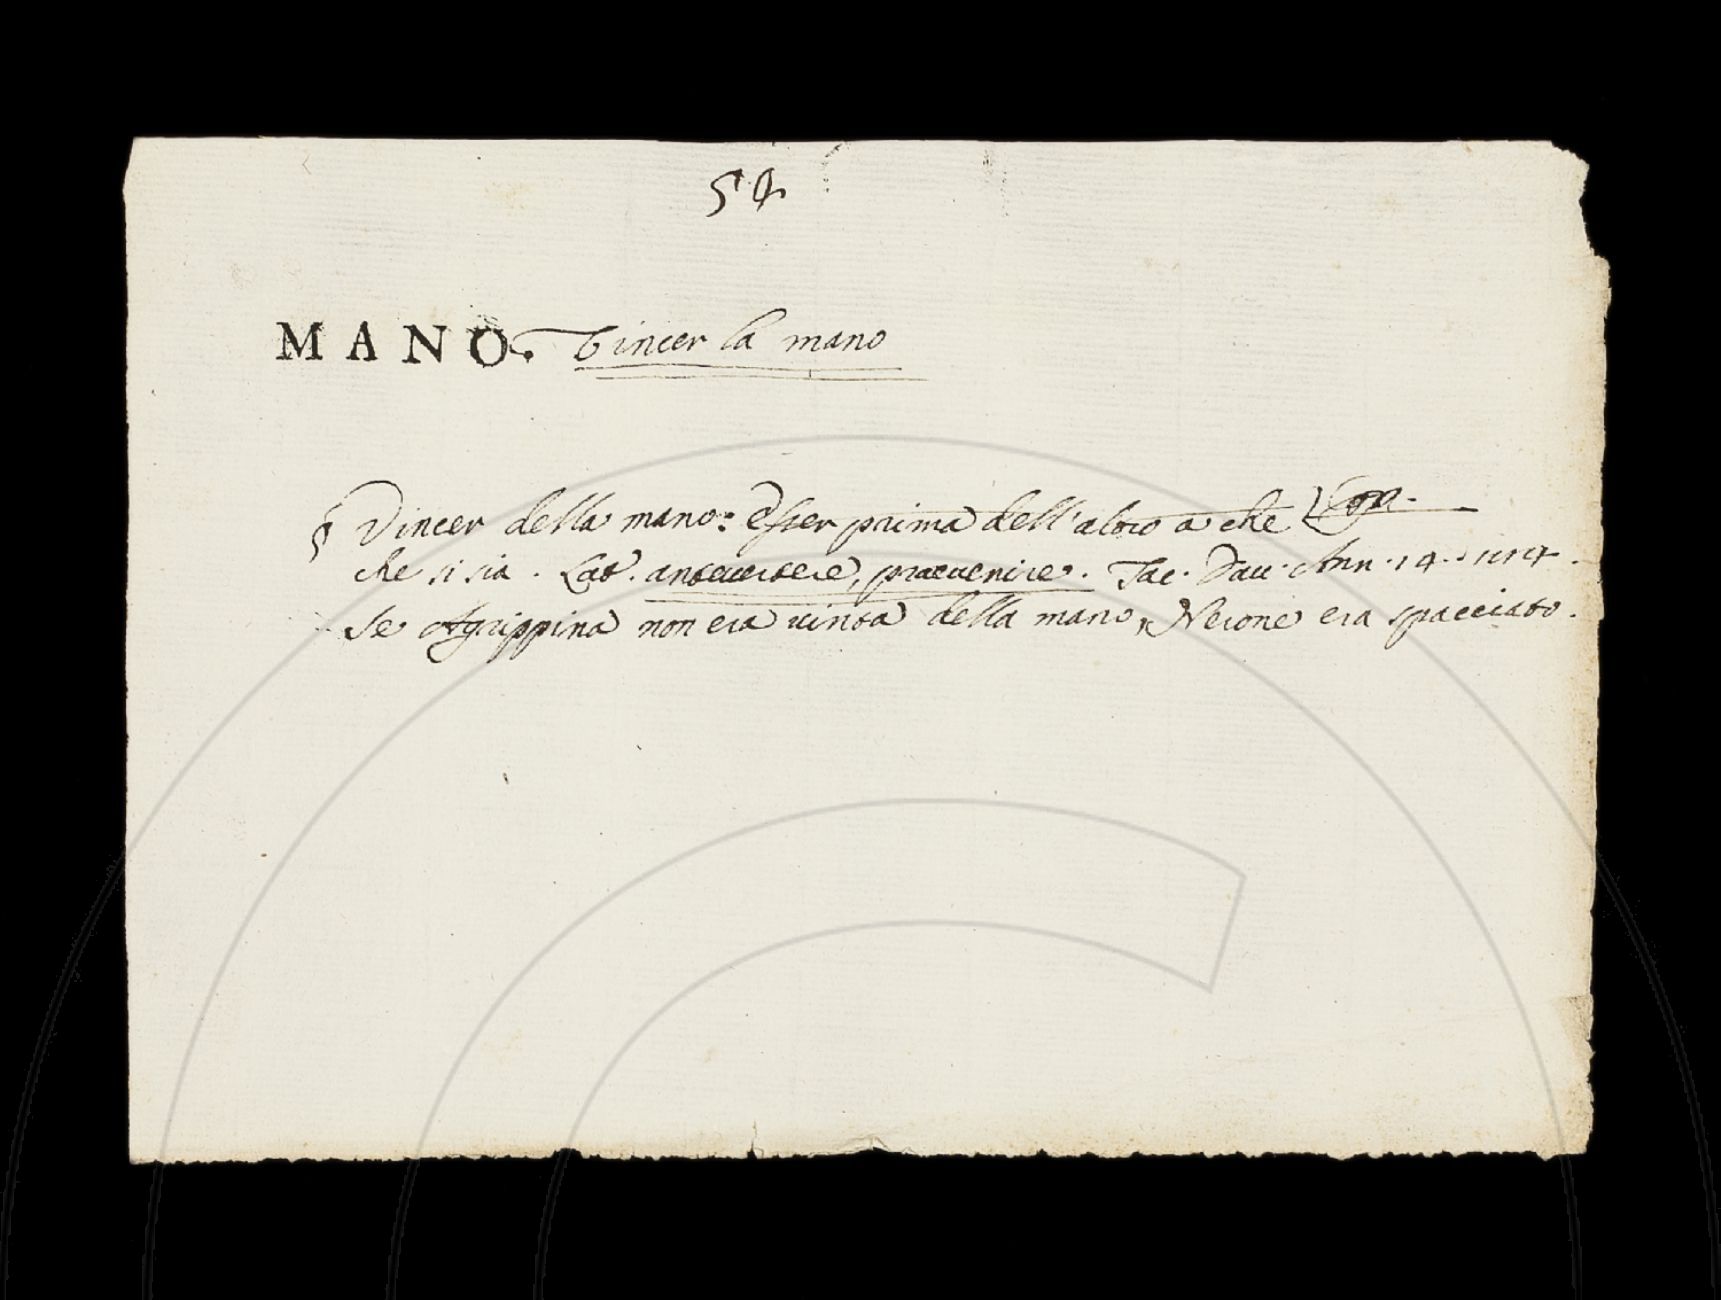 MANO. Vincer la mano
§ Vincer della mano: Esser prima dell'altro a che
che si sia. Lat. antevertere, praevenire. Tac. Dav. Ann. 14.
Se Agrippina non era vinta della mano, Nerone era spacciato.